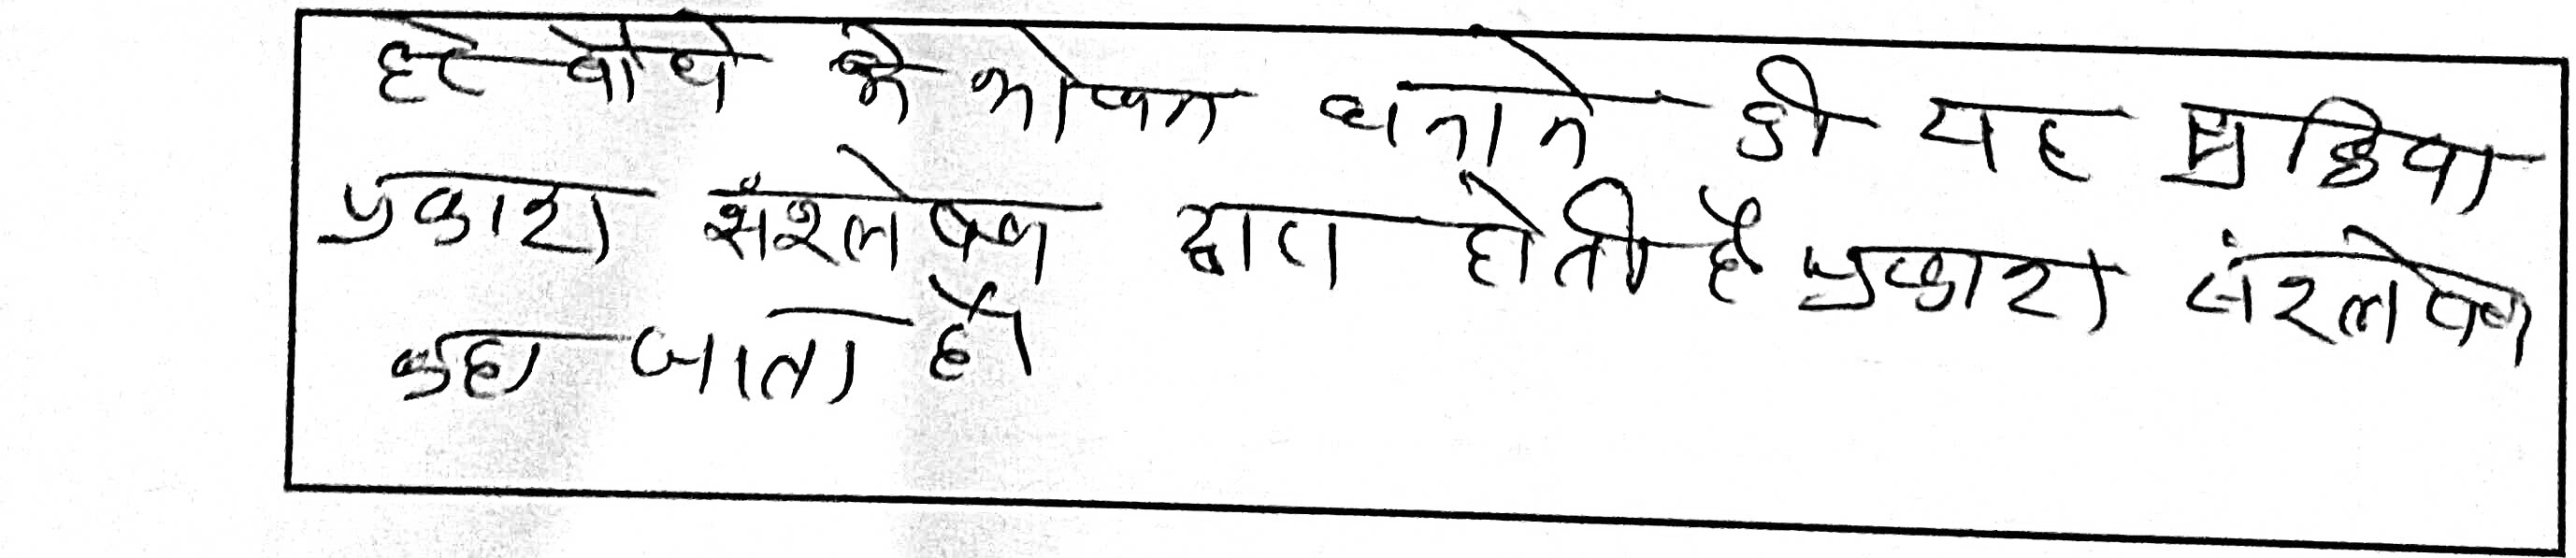 हरे पौधे के भोजन बनाने की यह प्रक्रिया
प्रकाश संश्लेषण द्वारा होती है प्रकाश संश्लेषण
कहा जाता है।